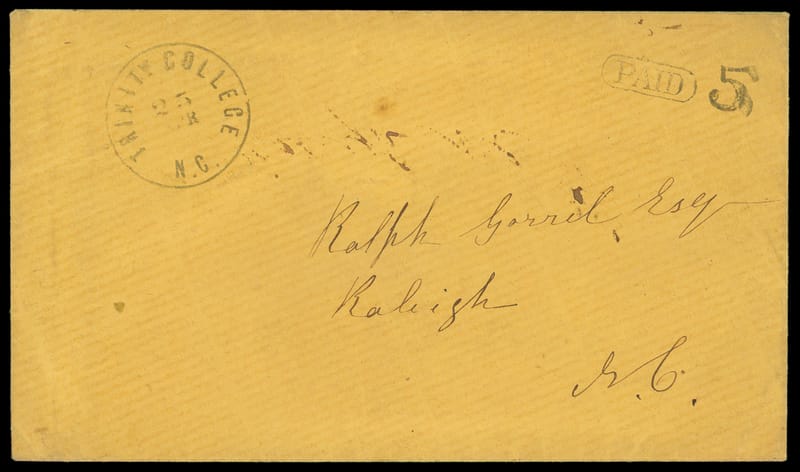 TRINITY COLLEGE
25
N.C.
PAID 5
Ralph Gorrel Esq
Raleigh
N.C.